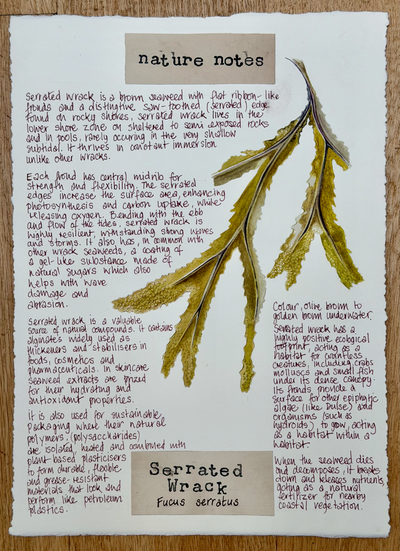 nature notes
Serrated wrack is a brown seaweed with flat ribbon-like
fronds and a distinctive saw-toothed (serrated) edge
found on rocky shores, serrated wrack lives in the
lower shore zone on sheltered to semi exposed rocks
and in pools, rarely occuring in the very shallow
subtidal. It thrives in constant immersion
unlike other wracks.
Each frond has central midrib for
strength and flexibility. The serrated
edges increase the surface area, enhancing
photosynthesis and carbon uptake, while
releasing oxygen. Bending with the ebb
and flow of the tides, serrated wrack is
highly resilient, withstanding strong waves
and storms. It also has, in common with
other wrack seaweeds, a coating of
a gel-like substance made of
natural sugars which also
helps with wave
damage and
abrasion.
Serrated wrack is a valuable
source of natural compounds. It contains
alginates widely used as
thickeners and stabilisers in
foods, cosmetics and
pharmaceuticals. In skincare
seaweed extracts are prized
for their hydrating and
antioxidant properties.
It is also used for sustainable
packaging where their natural
polymers (polysaccharides)
are isolated, heated and combined with
plant-based plasticisers
to form durable, flexible
and grease-resistant
materials that look and
perform like petroleum
plastics.
Colour, olive brown to
golden brown underwater.
Serrated wrack has a
highly positive ecological
footprint, acting as a
habitat for countless
creatures, including crabs
molluscs and small fish
under its dense canopy.
Its fronds provide a
surface for other epiphytic
algae (like Dulse) and
organisms (such as
hydroids) to grow, acting
as a habitat within a
habitat.
When the seaweed dies
and decomposes, it breaks
down and releases nutrients,
acting as a natural
fertilizer for nearby
coastal vegetation.
Serrated
Wrack
Fucus serratus